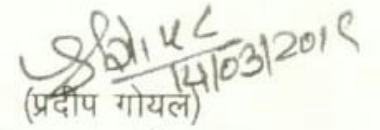 14/03/2019
(प्रदीप गोयल)